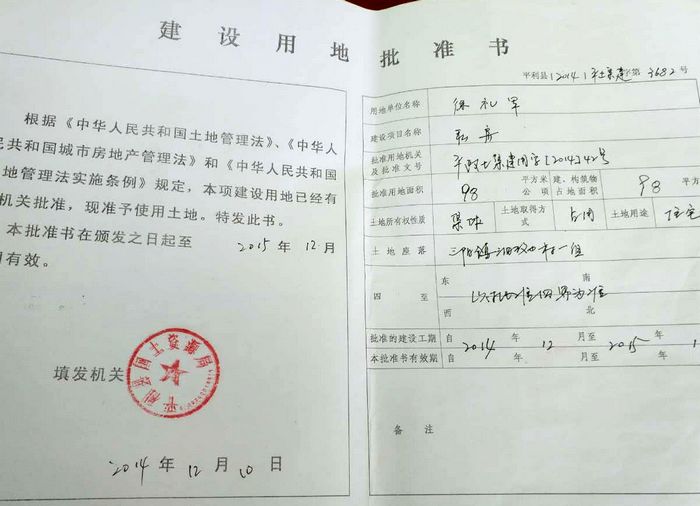 建设用地批准书
根据《中华人民共和国土地管理法》、《中华人
民共和国城市房地产管理法》和《中华人民共和国
地管理法实施条例》规定，本项建设用地已经有
机关批准，现准予使用土地。特发此书。
本批准书在颁发之日起至 2015 年 12 月
有效。
填发机关
平利县国土资源局
2014 年 12 月 10 日
平利县（2014）平土集建字第 3682 号
用地单位名称 徐礼军
建设项目名称 私房
批准用地机关及批准文号 平政土集建用字[2014]42号
批准用地面积 98 平方米 公顷 建、构筑物占地面积 98 平方
土地所有权性质 集体 土地取得方式 占用 土地用途 住宅
土地座落 三阳镇 村一组
四至 东 南 西 北
以 准
批准的建设工期 自 2014 年 12 月至 2015 年 1
本批准书有效期 自 年 月至 年
备注